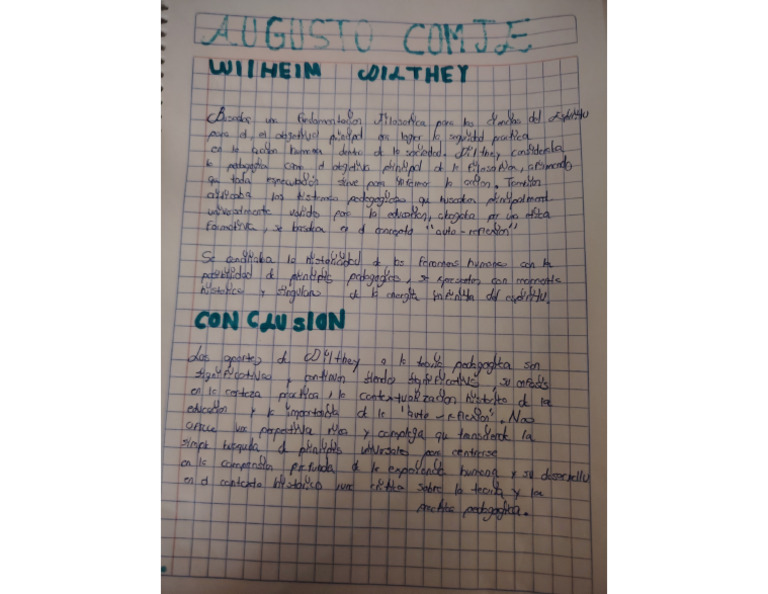 AUGUSTO COMTE
WILHEIM DILTHEY
Basados un fundamentacion filosofica para las ciencias del Espiritu
para el, el objetivo principal era lograr la seguridad practica
en la accion humana dentro de la sociedad. Dilthey, consideraba
la pedagogia como el objetivo principal de la filosofia, afirmando
que toda especulación sirve para informar la accion. Tambien
criticaba los sistemas pedagogicos que buscaban principalment
universalmente validos para la educacion, abogaba por una etica
formativa, se basaba en el concepto "auto-reflexion"
Se conciliaba la historicidad de los fenomenos humanos con la
posibilidad de principios pedagogicos, se expresaba con momentos
historicos y singulares de la energia infinita del espiritu.
CONCLUSION
Los aportes de Dilthey a la teoria pedagogica son
significativos y continuan siendo significativos, su enfasis
en la certeza practica, la contextualizacion historica de la
educacion y la importancia de la "auto-reflexion". Nos
ofrece una perspectiva rica y compleja que transciende la
simple busqueda de principios universales para centrarse
en la comprension profunda de la experiencia humana y su desarrollo
en el contexto historico sobre la teoria y la
practica pedagogica.